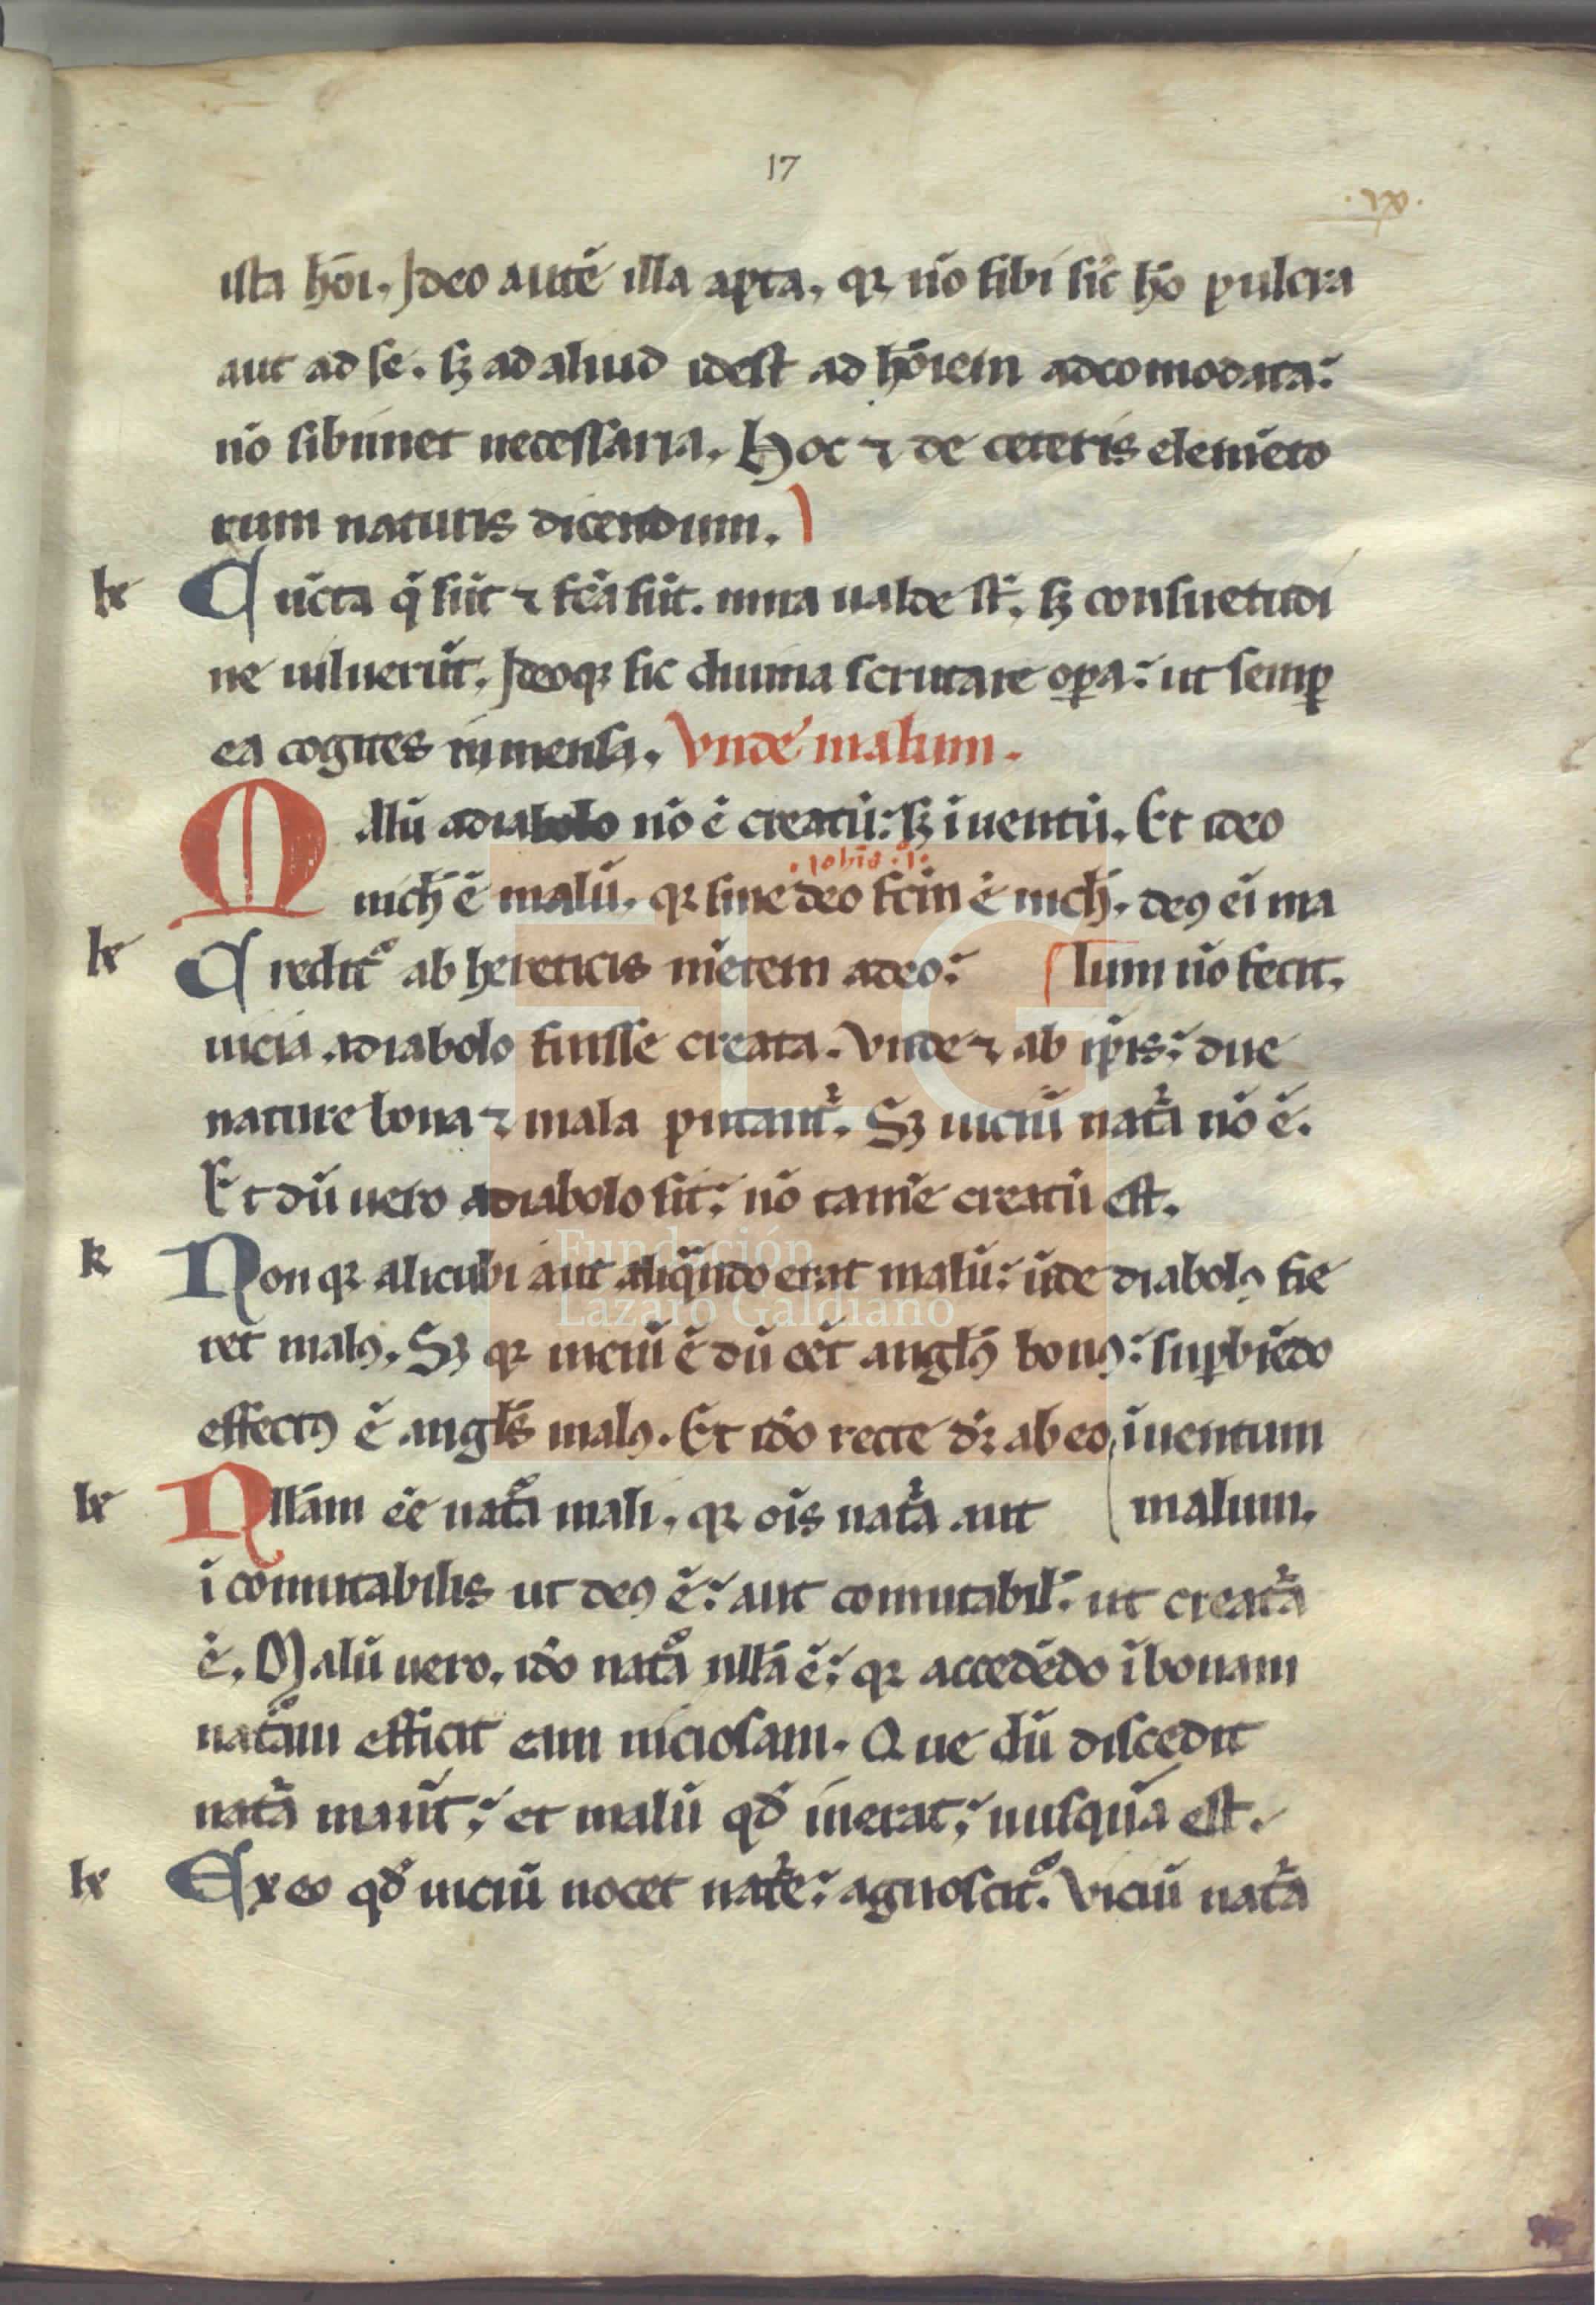 17
ista hōi. Ideo autē illa apta, qr nō sibi sic hō pulcra
aut ad se. sꝫ ad aliud idest ad hōiem adcomodata:
nō sibimet necessaria. Hoc ⁊ de ceteris elemēto
rum naturis dicendum.
Cūcta q̄ sūt ⁊ fc̄a sūt. mira ualde st̄. sꝫ consuetudi
ne uiluerūt. Ideoqꝫ sic diuina scrutare oꝑa: ut semꝑ
ea cogites īmensa. Vnde malum.
Malū adiabolo nō ē creatū: sꝫ īuentū. Et ideo
.ioh̄is .i.
nich̄ ē malū. qr sine deo fc̄m ē nich̄. deꝰ ei ma
Creditᷣ ab hereticis mētem adeo: lum nō fecit.
uicia adiabolo fuisse creata. Vnde ⁊ ab ip̄is: due
nature bona ⁊ mala putantᷣ. Sꝫ uiciū nat̄a nō ē.
Et dū uero adiabolo sit: nō tam̄e creatū est.
Non qr alicubi aut aliq̄ndo erat malū: ūde diabolꝰ fie
ret malꝰ. Sꝫ qr uiciū ē dū eēt anglꝰ bonꝰ: suꝑbiēdo
effectꝰ ē angl̄s malꝰ. Et id̄o recte dr̄ ab eo īuentum
Nllām eē nat̄a mali. qr oīs nat̄a aut malum.
īcōmutabilis ut deꝰ ē: aut comutabil̄: ut creat̄a
ē. Malū uero. id̄o nat̄a nllā ē: qr accedēdo ī bonam
nat̄am efficit eam uiciosam. Que cū discedit
nat̄a man̄t: et malū qd̄ inerat: nusquā est.
Ex eo qd̄ uiciū nocet nat̄e: agnoscitᷣ. Viciū nat̄a
Fundación
Lázaro Galdiano
FLG